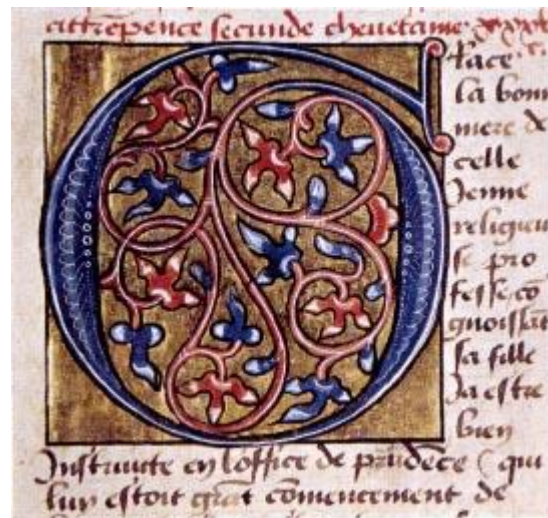 attrēpence secunde chevetaine xxxvi
G
race
la bonn
mere de
celle
Jenne
religieu
se pro
fesse cō
gnoissāt
sa fille
Ja estre
bien
Instruicte en loffice de prudēce ( qui
luy estoit grāt cōmencement de